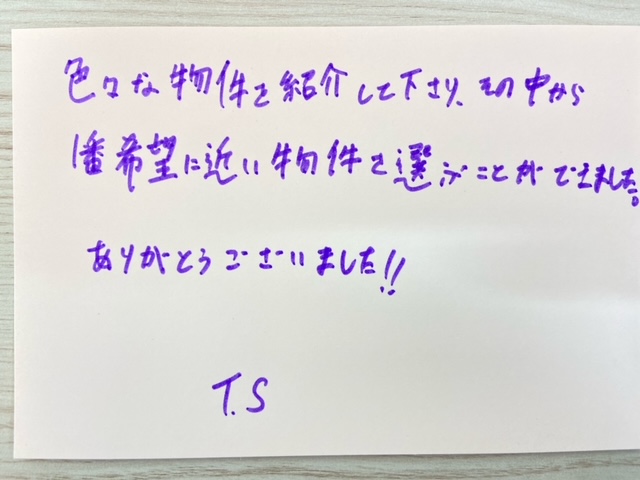 色々な物件を紹介して下さり、その中から
1番希望に近い物件を選ぶことができました。
ありがとうございました!!
T.S